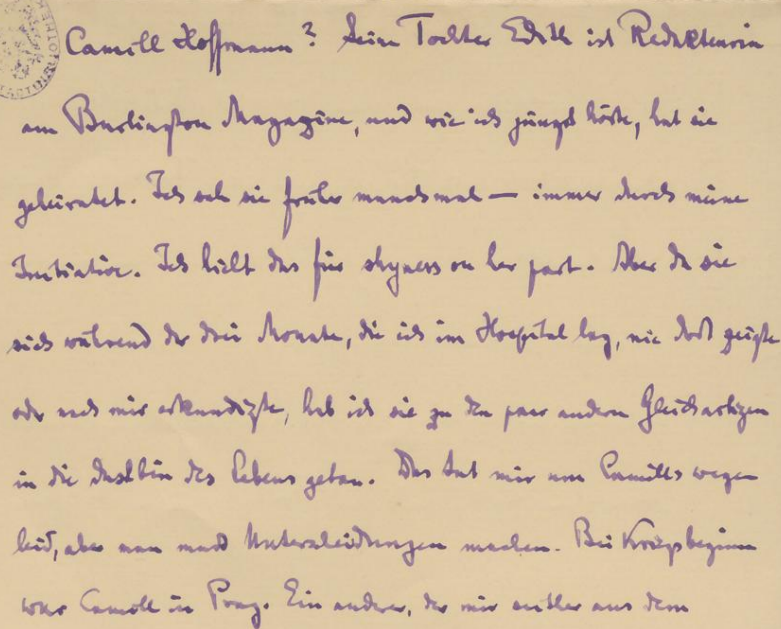 Camill Hoffmann? Seine Tochter Edith ist Redakteurin
am Burlington Magazine, und wie ich jüngst hörte, hat sie
geheiratet. Ich sah sie früher manchmal — immer durch meine
Initiative. Ich hielt das für shyness on her part. Aber da sie
sich während der drei Monate, die ich im Hospital lag, nie dort zeigte
oder nach mir erkundigte, hab ich sie zu den paar andern Gleichartigen
in die dustbin des Lebens getan. Das tut mir um Camills wegen
leid, aber man muss Unterscheidungen machen. Bei Kriegsbeginn
war Camill in Prag. Ein anderer, der mir seither aus dem